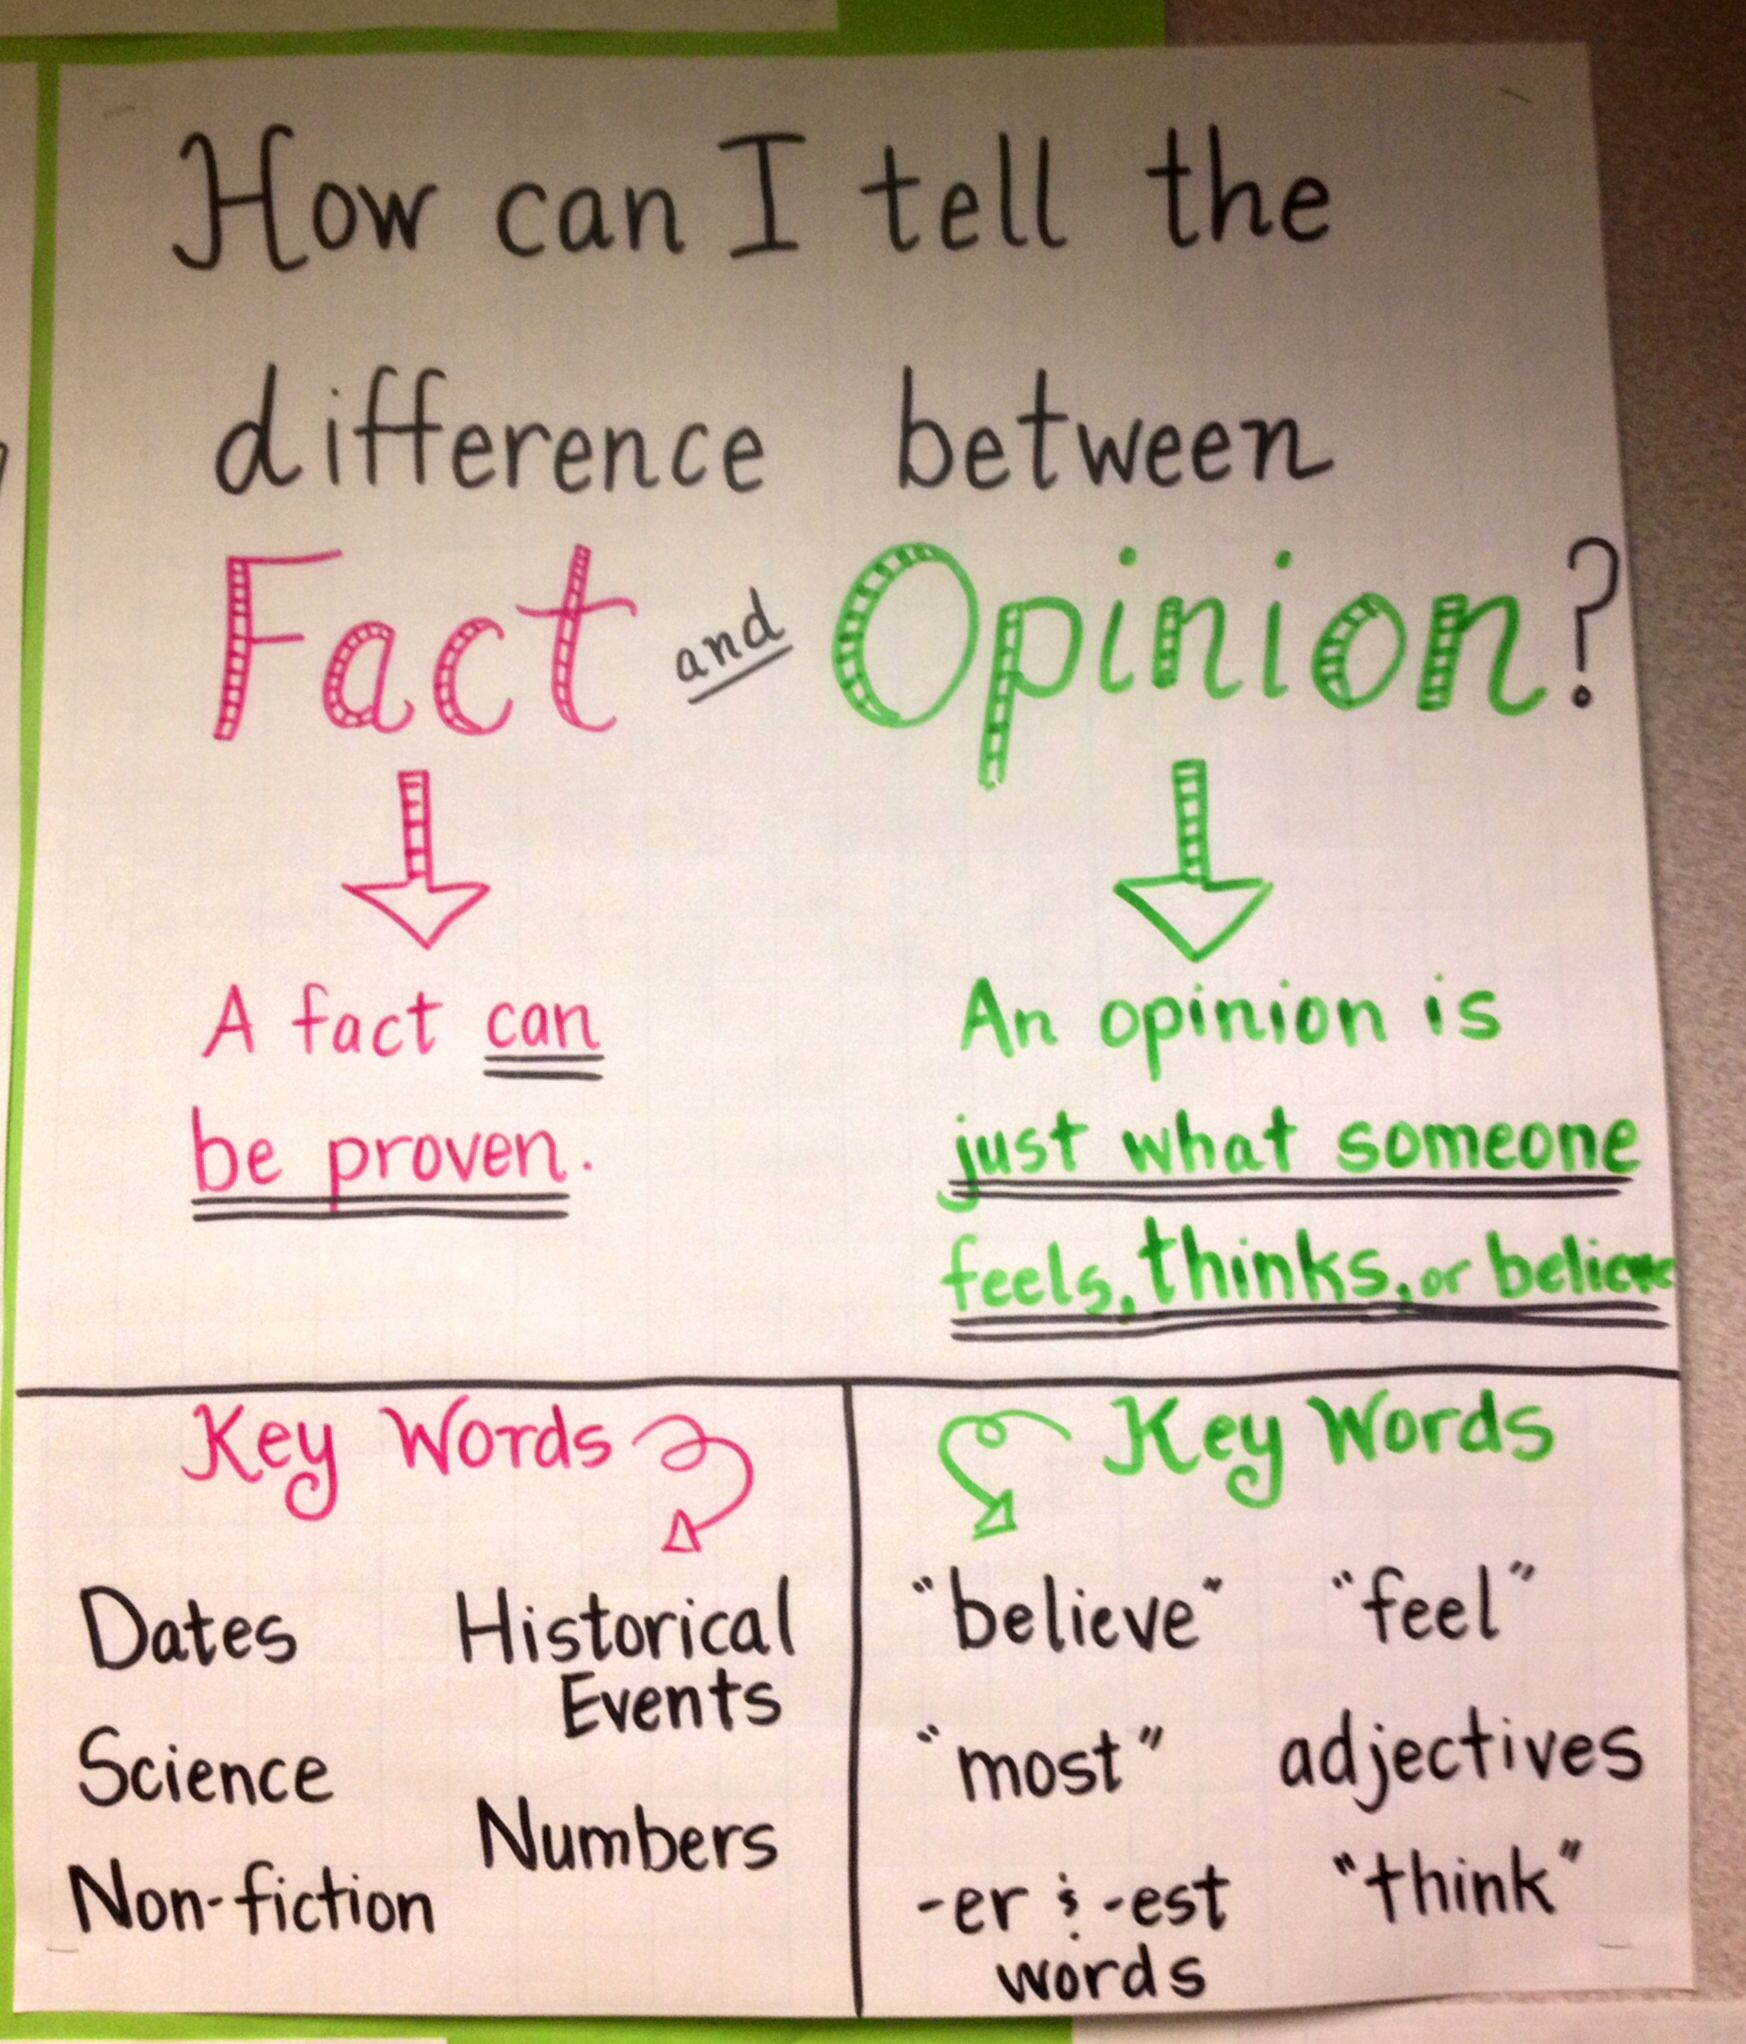 How can I tell the
difference between
Fact and Opinion?
A fact can
be proven.
An opinion is
just what someone
feels, thinks, or
Key Words
Dates
Historical
Events
Science
Numbers
Non-fiction
Key Words
"believe" "feel"
"most" adjectives
-er & -est "think"
words